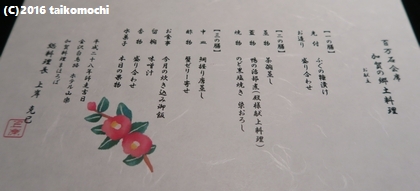 (C)2016 taikomochi
百万石会席
加賀の郷土料理
お献立
【一の膳】
先付 ふぐの糠漬け
お造り 盛り合わせ
【二の膳】
蒸物 茶碗蒸し
煮物 鴨の治部煮(政様献上料理)
焼物 のど黒塩焼き 染おろし
【三の膳】
中皿
酢物 蟹ゼリー寄せ
お食事 今月の炊き込み御飯
留椀 味噌汁
香物 盛り合わせ
水菓子 本日の果物
平成二十八年師走吉日
金沢白鳥路 ホテル山楽
加賀料理まほろば
総料理長 上岸 克巳